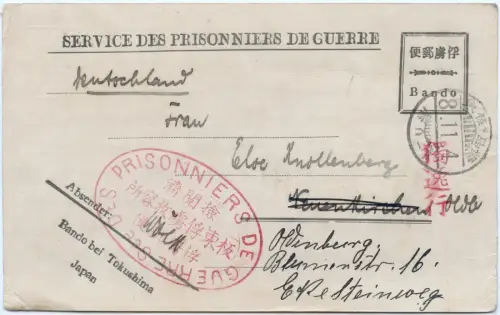 SERVICE DES PRISONNIERS DE GUERRE
俘虜郵便
Bando
Deutschland
Frau
Else Knollenberg
Neuenkirchen Oldb
Oldenburg,
Blumenstr. 16.
Ecke Steinweg
8.11.4
PRISONNIERS DE GUERRE
板東俘虜収容所
檢閲濟
Absender:
Bando bei Tokushima
Japan